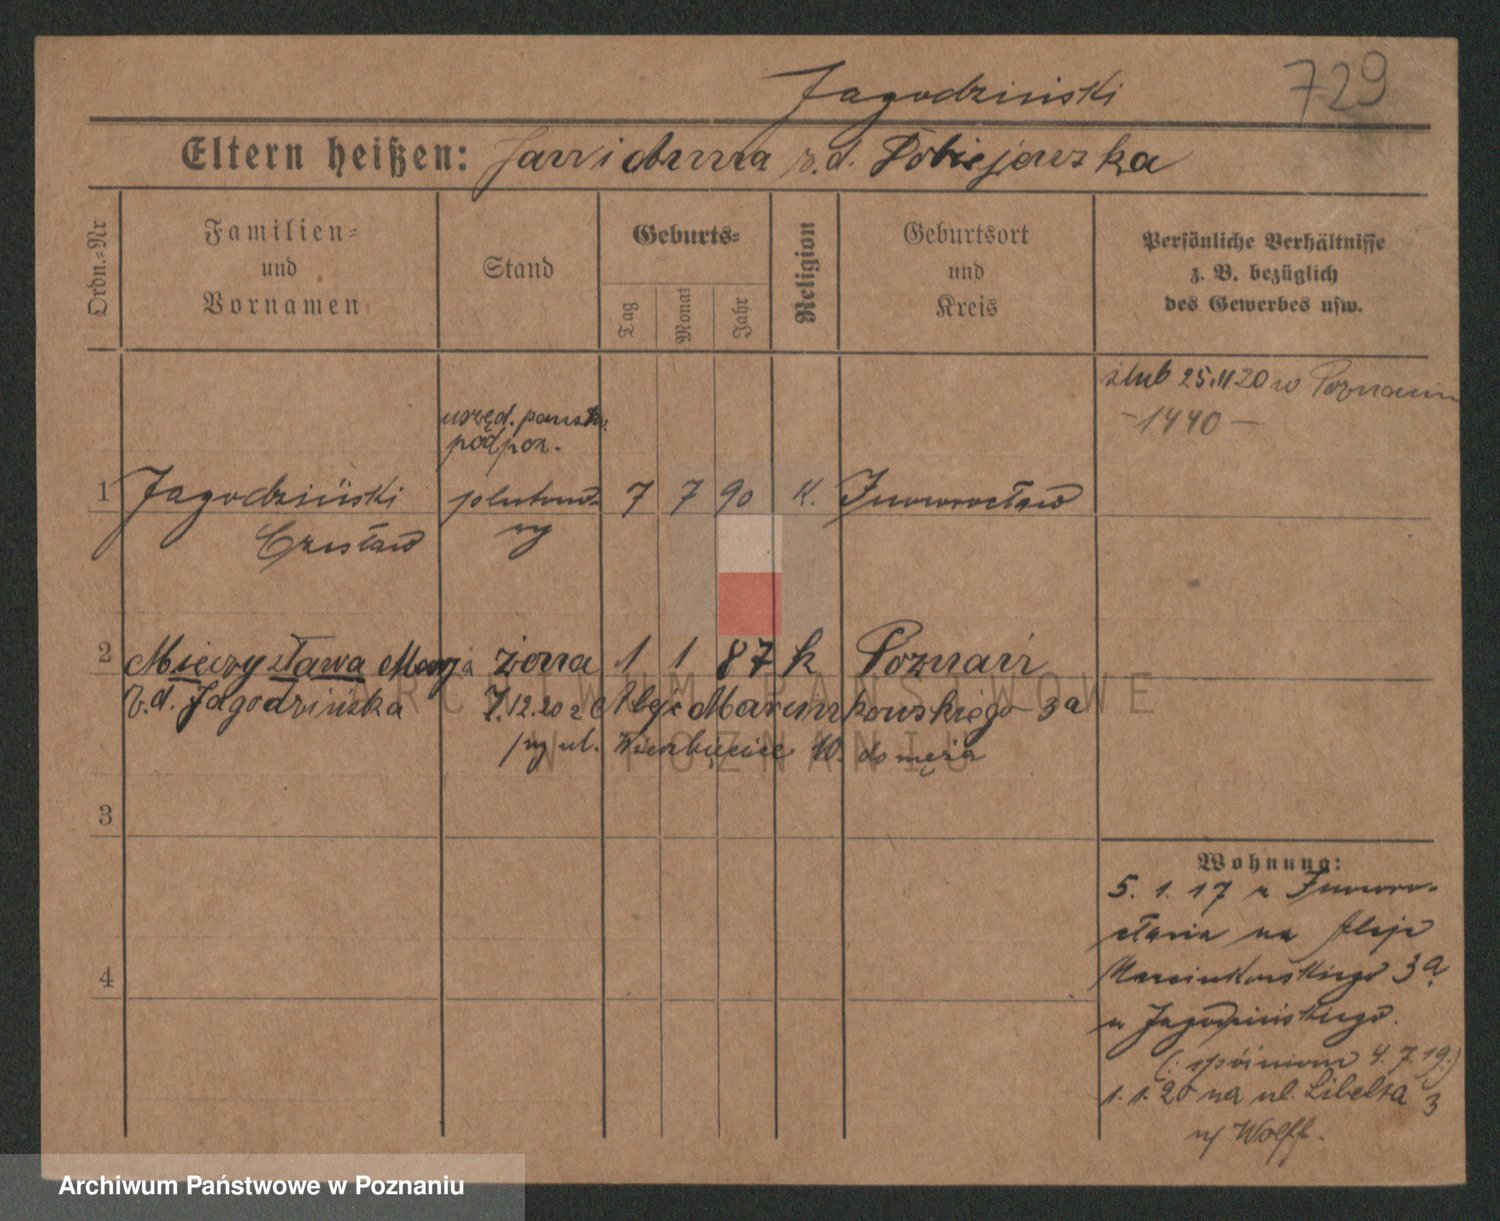 Jagodziński
729
Eltern heißen: Jan i Anna z.d. Pobiejewska
Ordn.-Nr
Familien-
und
Vornamen
Stand
Geburts-
Tag
Monat
Jahr
Religion
Geburtsort
und
Kreis
Persönliche Verhältnisse
z. B. bezüglich
des Gewerbes usw.
ślub 25.11.20 w Poznaniu
- 1440 -
urzęd. państw.
podpor.
1 Jagodziński plutono- 7 7 90 K. Inowrocław
Czesław wy
2 Mieczysława Marja żona 1 1 87 k Poznań
z.d. Jagodzińska 7.12.20 z Aleje Marcinkowskiego 3a
ul. Wierzbięcice 10. do męża
3
4
Wohnung:
5. 1. 17 z Inowro-
cławia na Aleje
Marcinkowskiego 3a.
u Jagodzińskiego.
4.7.19.)
1. 1. 20 na ul. Libelta 3
Wolff.
ARCHIWUM PAŃSTWOWE
W POZNANIU
Archiwum Państwowe w Poznaniu